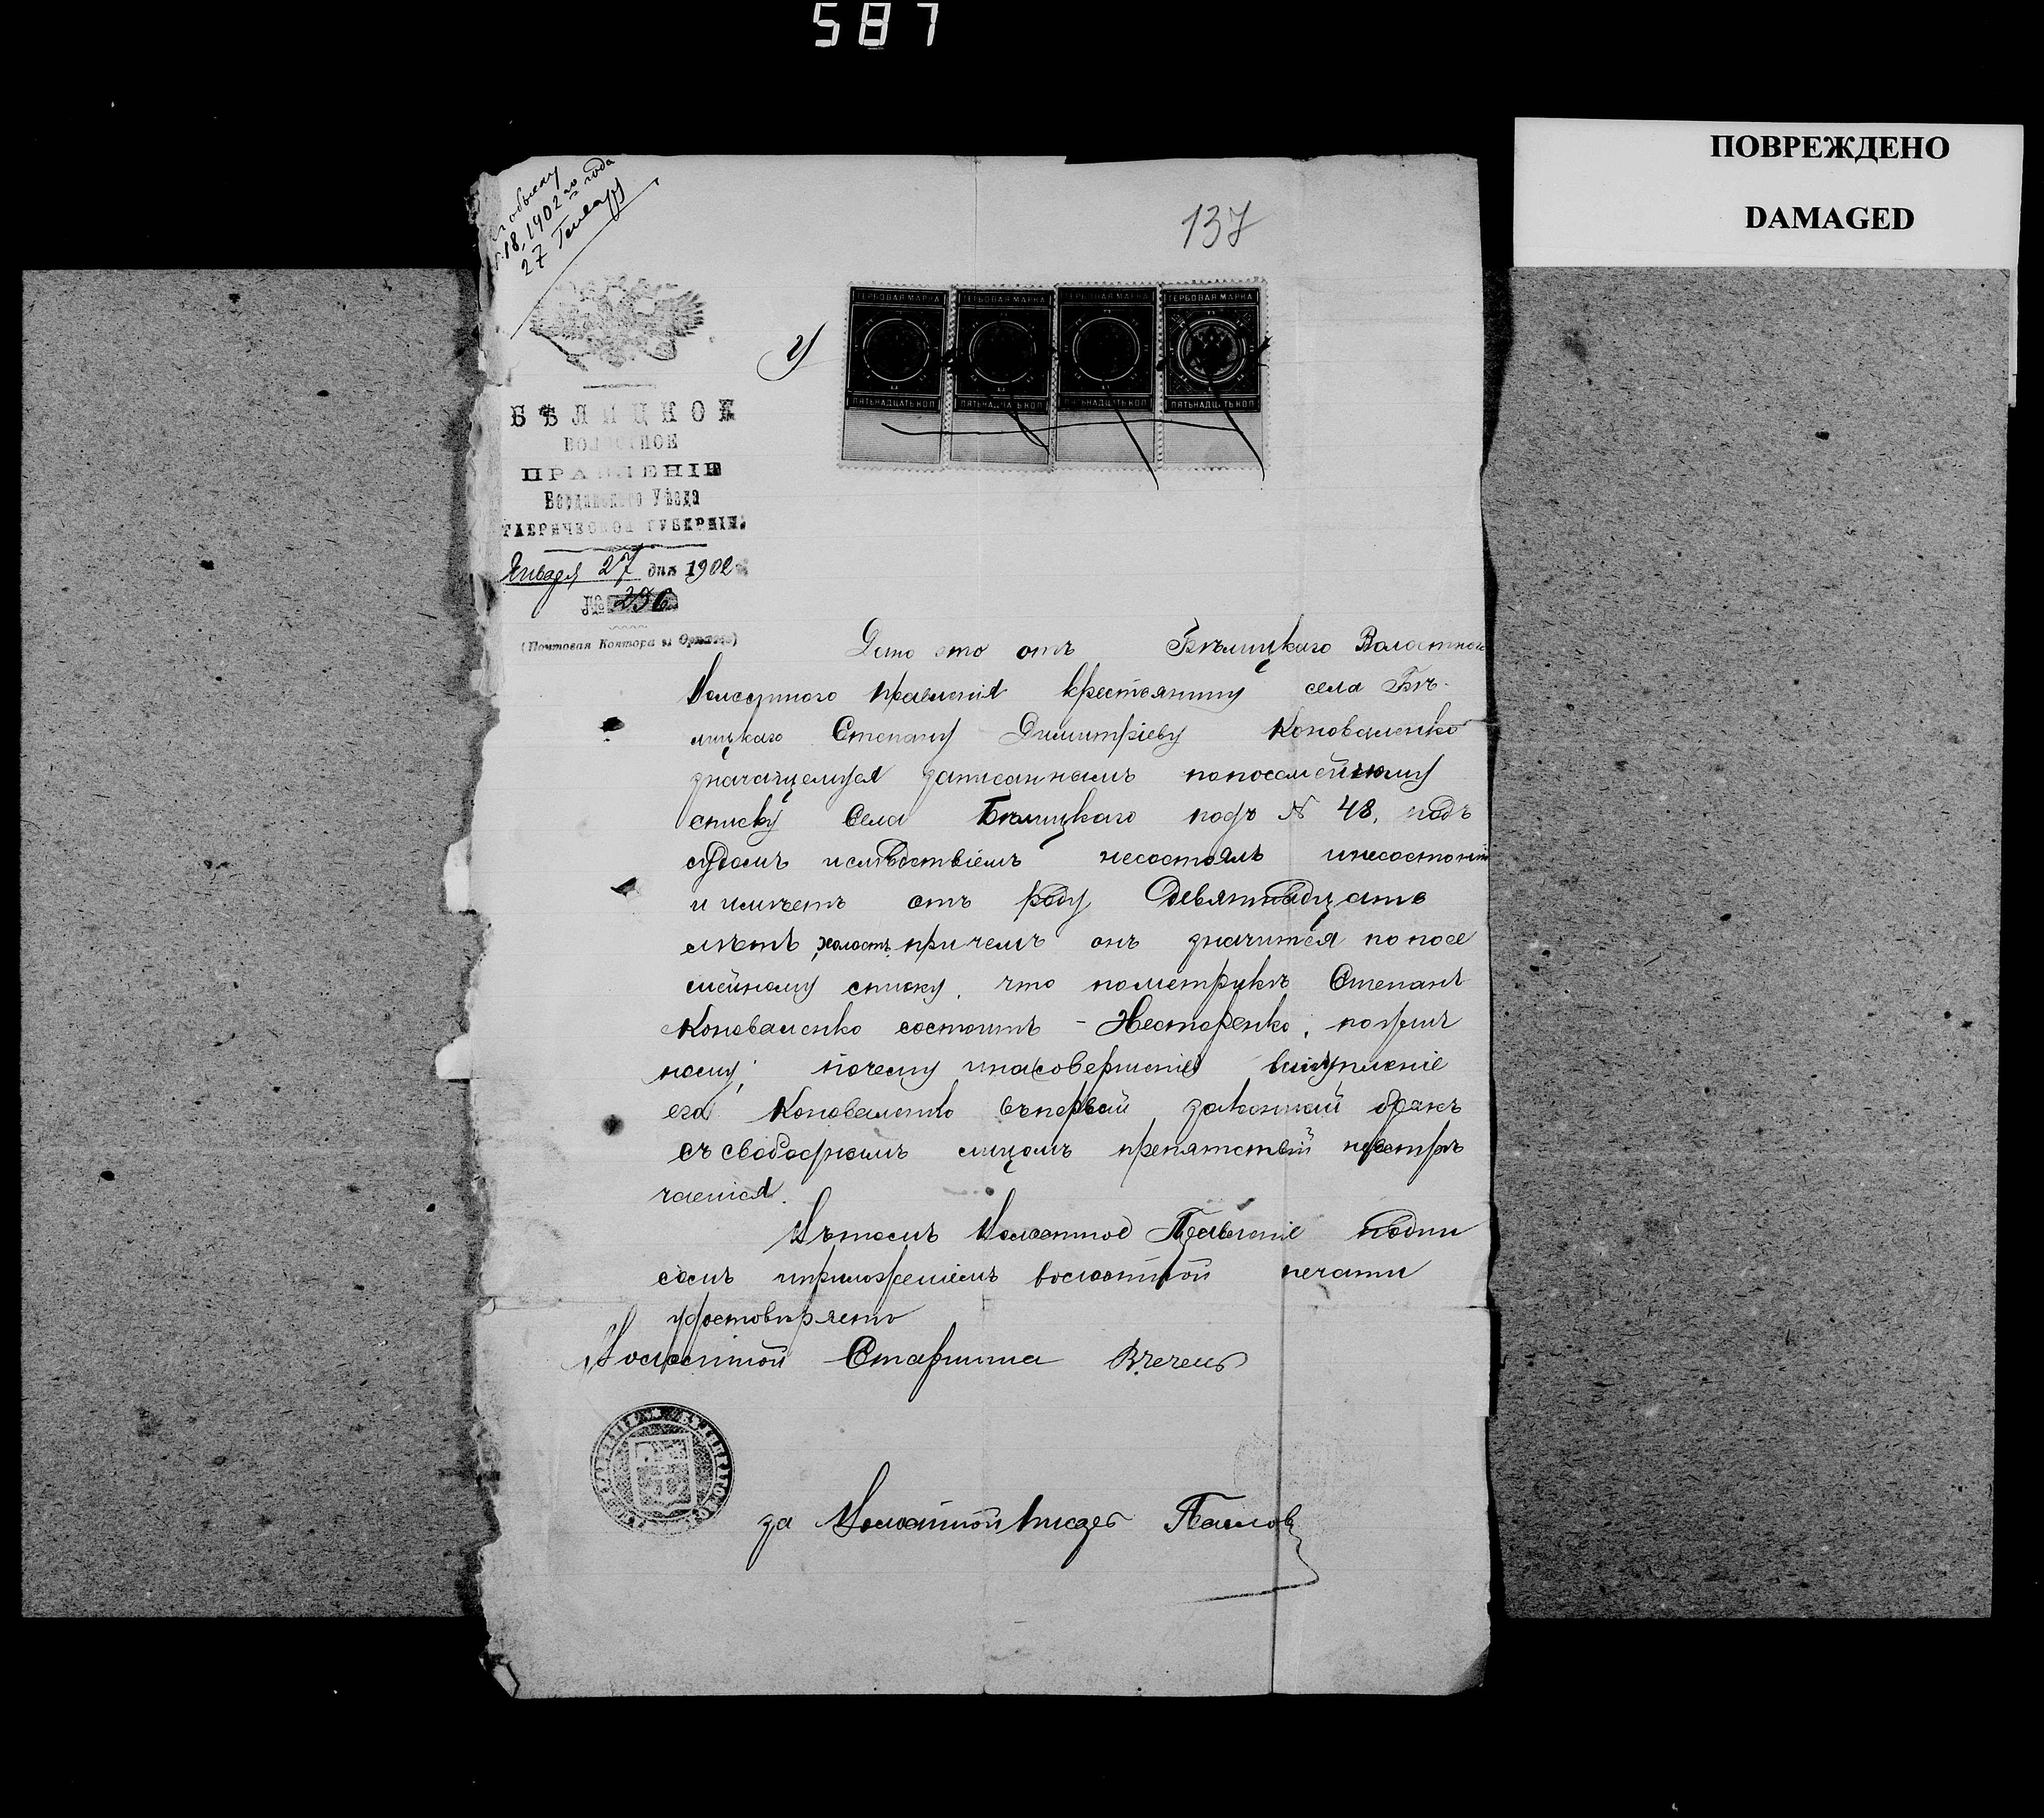 587
ПОВРЕЖДЕНО
DAMAGED
обыску
18, 1902 го года
27 Генваря
137
ГЕРБОВАЯ МАРКА ГЕРБОВАЯ МАРКА ГЕРБОВАЯ МАРКА ГЕРБОВАЯ МАРКА
ПЯТЬНАДЦАТЬ КОП ПЯТЬНАДЦАТЬ КОП ПЯТЬНАДЦАТЬ КОП ПЯТЬНАДЦАТЬ КОП
БѢЛИЦКОЕ
ВОЛОСТНОЕ
ПРАВЛЕНІЕ
Бердянскаго Уѣзда
ТАВРИЧЕСКОЙ ГУБЕРНІИ.
Января 27 дня 1902
№ 236
(Почтовая Контора въ Орѣховѣ)
Дано это отъ Бѣлицкаго Волостнаго
Волостного правленія крестьянину села Бѣ-
лицкаго Степану Димитріеву Коноваленко
значащемуся записаннымъ попосемейному
списку села Бѣлицкаго подъ № 48, подъ
судомъ ислѣдствіемъ несостоялъ инесостоитъ
и имѣетъ отъ роду Девятнадцать
лѣтъ, холостъ, причемъ онъ значится по посе
мейному списку, что пометрикѣ Степанъ
Коноваленко состоитъ - Несторенко,
ному; почему инасовершеніе вступленіе
его Коноваленко въпервый законный бракъ
съ свободнымъ лицомъ препятствій невстрѣ
чается.
Въ томъ Волостное Правленіе подпи
сомъ иприложеніемъ волостной печати
удостовѣряетъ
Волостной Старшина
за Волостной Писарь Павлов